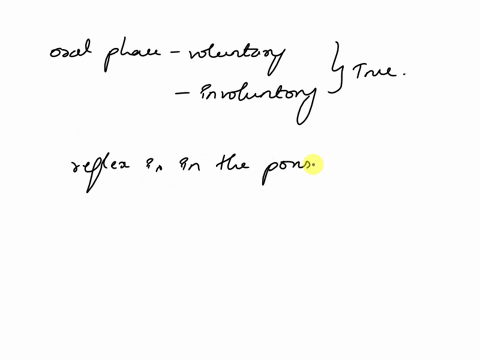 oral phase - voluntary
- involuntary } True.
reflex in in the pons.